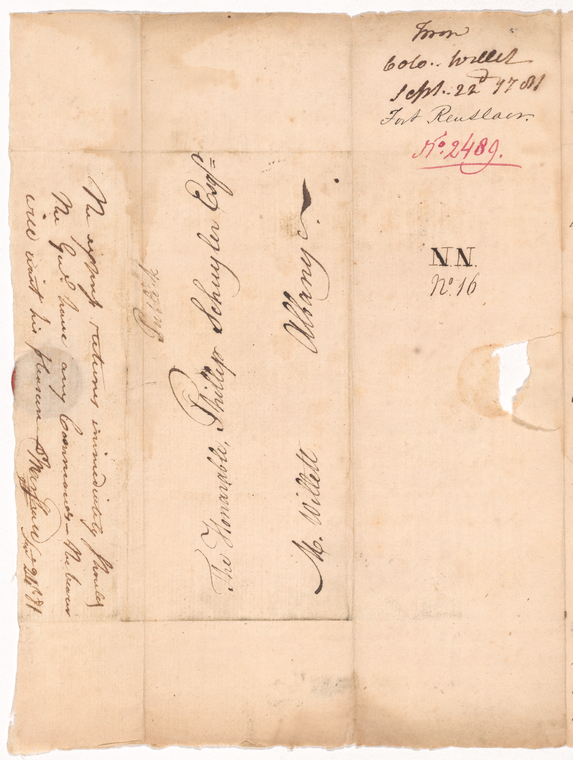 From
Colo.. Willet
Sept.. 22d 1781
Fort Renslaer.
No. 2489.
NN.
No 16
The Honorable, Phillip Schuyler Esqr
Albany
M. Willett
Publick
The express returns immediately should
the Genl have any Commands the bearer
will wait his pleasure